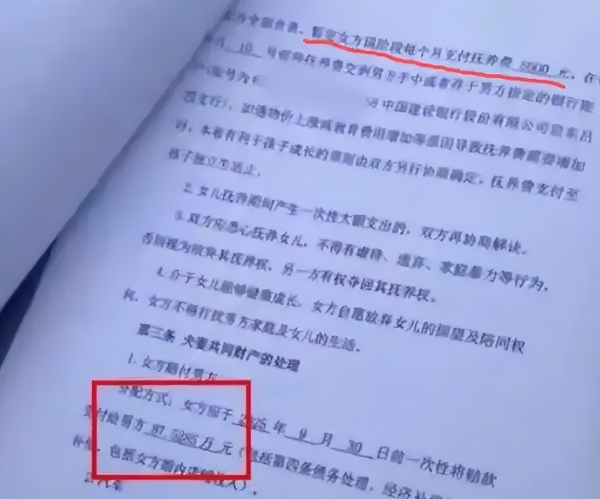 方全额负责。暂定女方现阶段每个月支付抚养费 8000 元，在
10 号前将抚养费交到男方手中或者存于男方指定的银行账
账号为6 8中国建设银行股份有限公司启东吕
四支行），如遇物价上涨或教育费用增加等原因导致抚养费需要增加
时，本着有利于孩子成长的原则由双方另行协商确定，抚养费支付至
孩子独立生活止。
2. 女儿抚养期间产生一次性大额支出的，双方再协商解决。
3. 双方应悉心抚养女儿，不得有虐待、遗弃、家庭暴力等行为，
否则视为放弃其抚养权，另一方有权夺回其抚养权。
4. 介于女儿能够健康成长，女方自愿放弃女儿的探望及陪同权
利，女方不得打扰男方家庭及女儿的生活。
第三条 夫妻共同财产的处理
1. 女方赔付男方
分配方式：女方应于 2025 年 9 月 30 日前一次性将赔款
支付给男方 万元（包括第四条债务处理，经济补
补偿，包括女方婚内